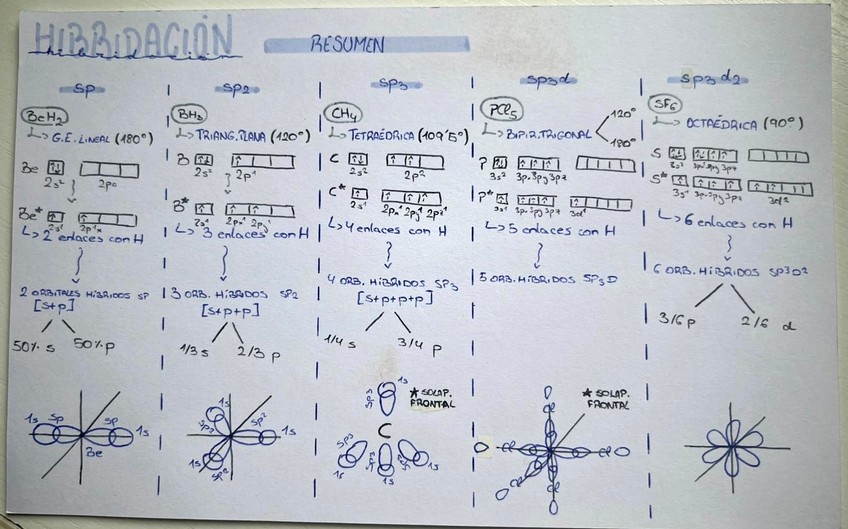 HIBRIDACIÓN
hibridación
RESUMEN
sp
BeH2
↳ G.E. LINEAL (180°)
Be ↑↓
2s² 2p⁰
Be* ↑ ↑
2s¹ 2p¹x
↳ 2 enlaces con H
2 ORBITALES HÍBRIDOS SP
[s+p]
50% s 50% p
1s sp sp 1s
Be
sp2
BH3
↳ TRIANG. PLANA (120°)
B ↑↓ ↑
2s² 2p¹
B* ↑ ↑ ↑
2s¹ 2px¹ 2py¹
↳ 3 enlaces con H
3 ORB. HÍBRIDOS SP2
[s+p+p]
1/3 s 2/3 p
1s
sp2 sp² 1s
sp²
sp3
CH4
↳ TETRAÉDRICA (109'5°)
C ↑↓ ↑ ↑
2s² 2p²
C* ↑ ↑ ↑ ↑
2s¹ 2px¹ 2py¹ 2pz¹
↳ 4 enlaces con H
4 ORB. HÍBRIDOS SP3
[s+p+p+p]
1/4 s 3/4 p
1s
sp3
* SOLAP.
FRONTAL
C
sp3 sp3 sp3
1s 1s 1s
sp3d
PCl5
120°
↳ BIPIR. TRIGONAL
180°
P ↑↓ ↑ ↑ ↑
3s² 3px 3py 3pz
P* ↑ ↑ ↑ ↑ ↑
3s¹ 3px 3py 3pz 3d¹
↳ 5 enlaces con H
5 ORB. HÍBRIDOS SP3D
* SOLAP.
FRONTAL
sp3d2
SF6
↳ OCTAÉDRICA (90°)
S
3s² 3px 3py 3pz
S*
3s¹ 3px 3py 3pz 3d²
↳ 6 enlaces con H
6 ORB. HÍBRIDOS SP3D²
3/6 p 2/6 d